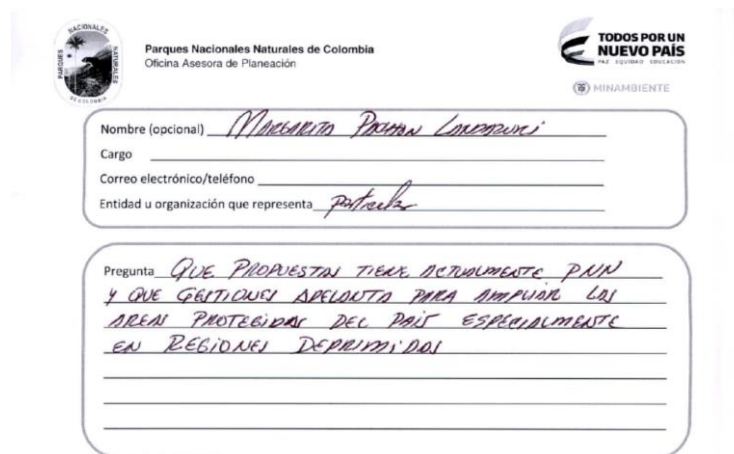 PARQUES NACIONALES NATURALES DE COLOMBIA
Parques Nacionales Naturales de Colombia
Oficina Asesora de Planeación
TODOS POR UN
NUEVO PAÍS
PAZ EQUIDAD EDUCACIÓN
MINAMBIENTE
Nombre (opcional) MARGARITA
Cargo
Correo electrónico/teléfono
Entidad u organización que representa particular
Pregunta QUE PROPUESTAS TIENE ACTUALMENTE PNN
Y QUE GESTIONES ADELANTA PARA AMPLIAR LAS
AREAS PROTEGIDAS DEL PAIS ESPECIALMENTE
EN REGIONES DEPRIMIDAS